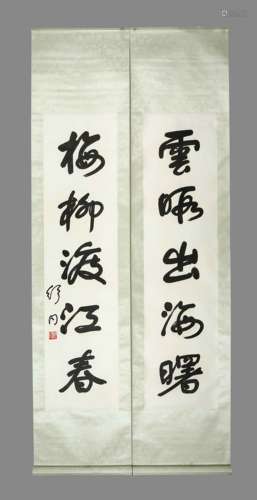 雲霞出海曙
梅柳渡江春
舒同